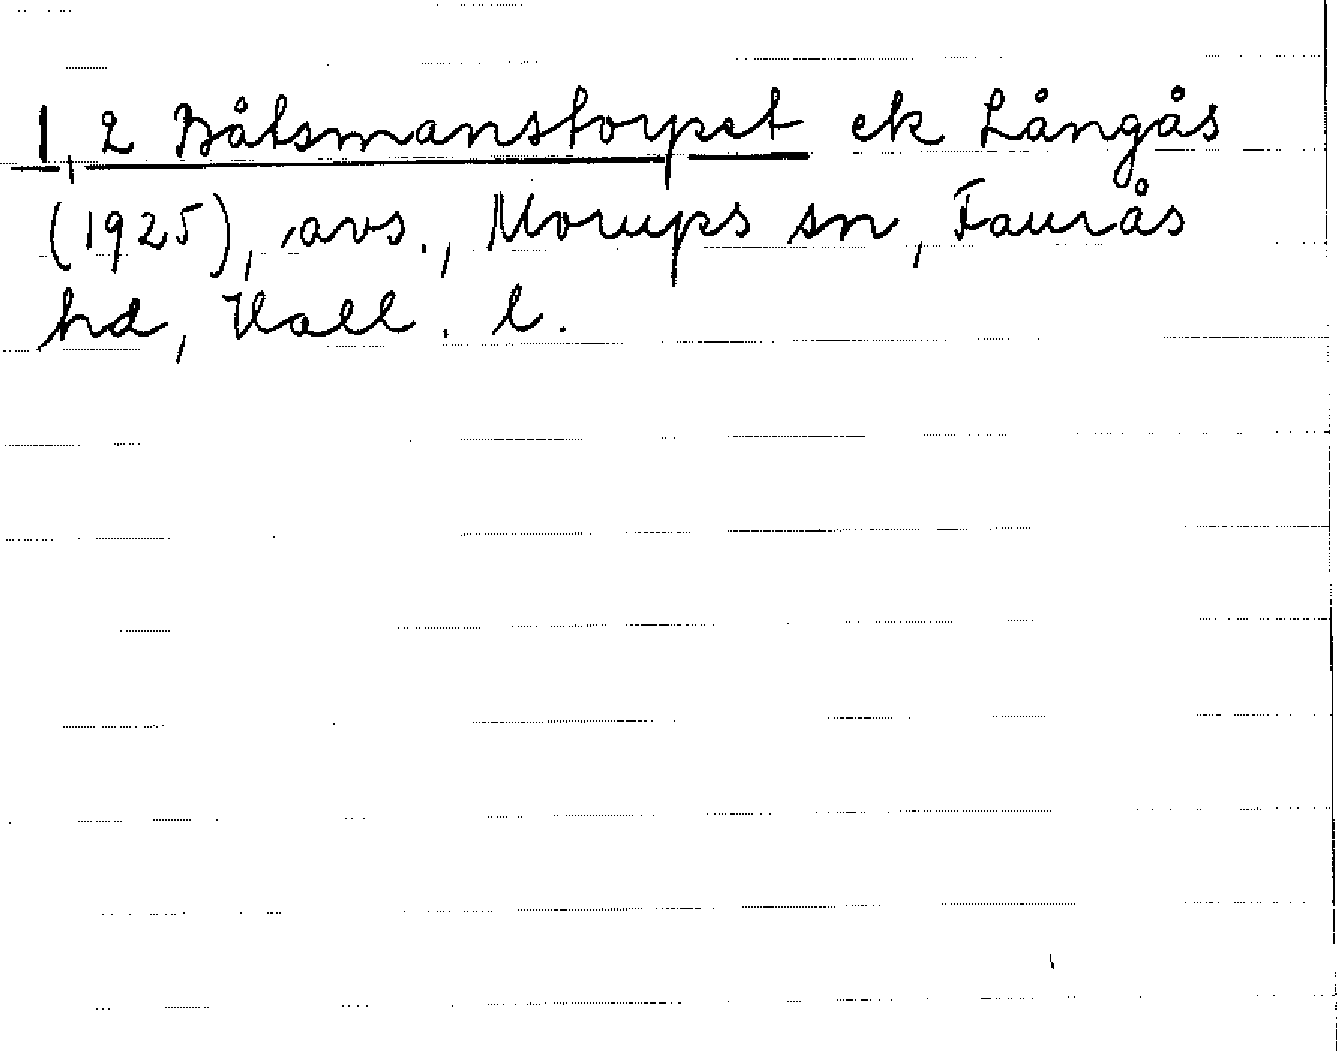 1, 2 Båtsmanstorpet ek Långås
(1925), avs., Morups sn, Faurås
hd, Hall. l.